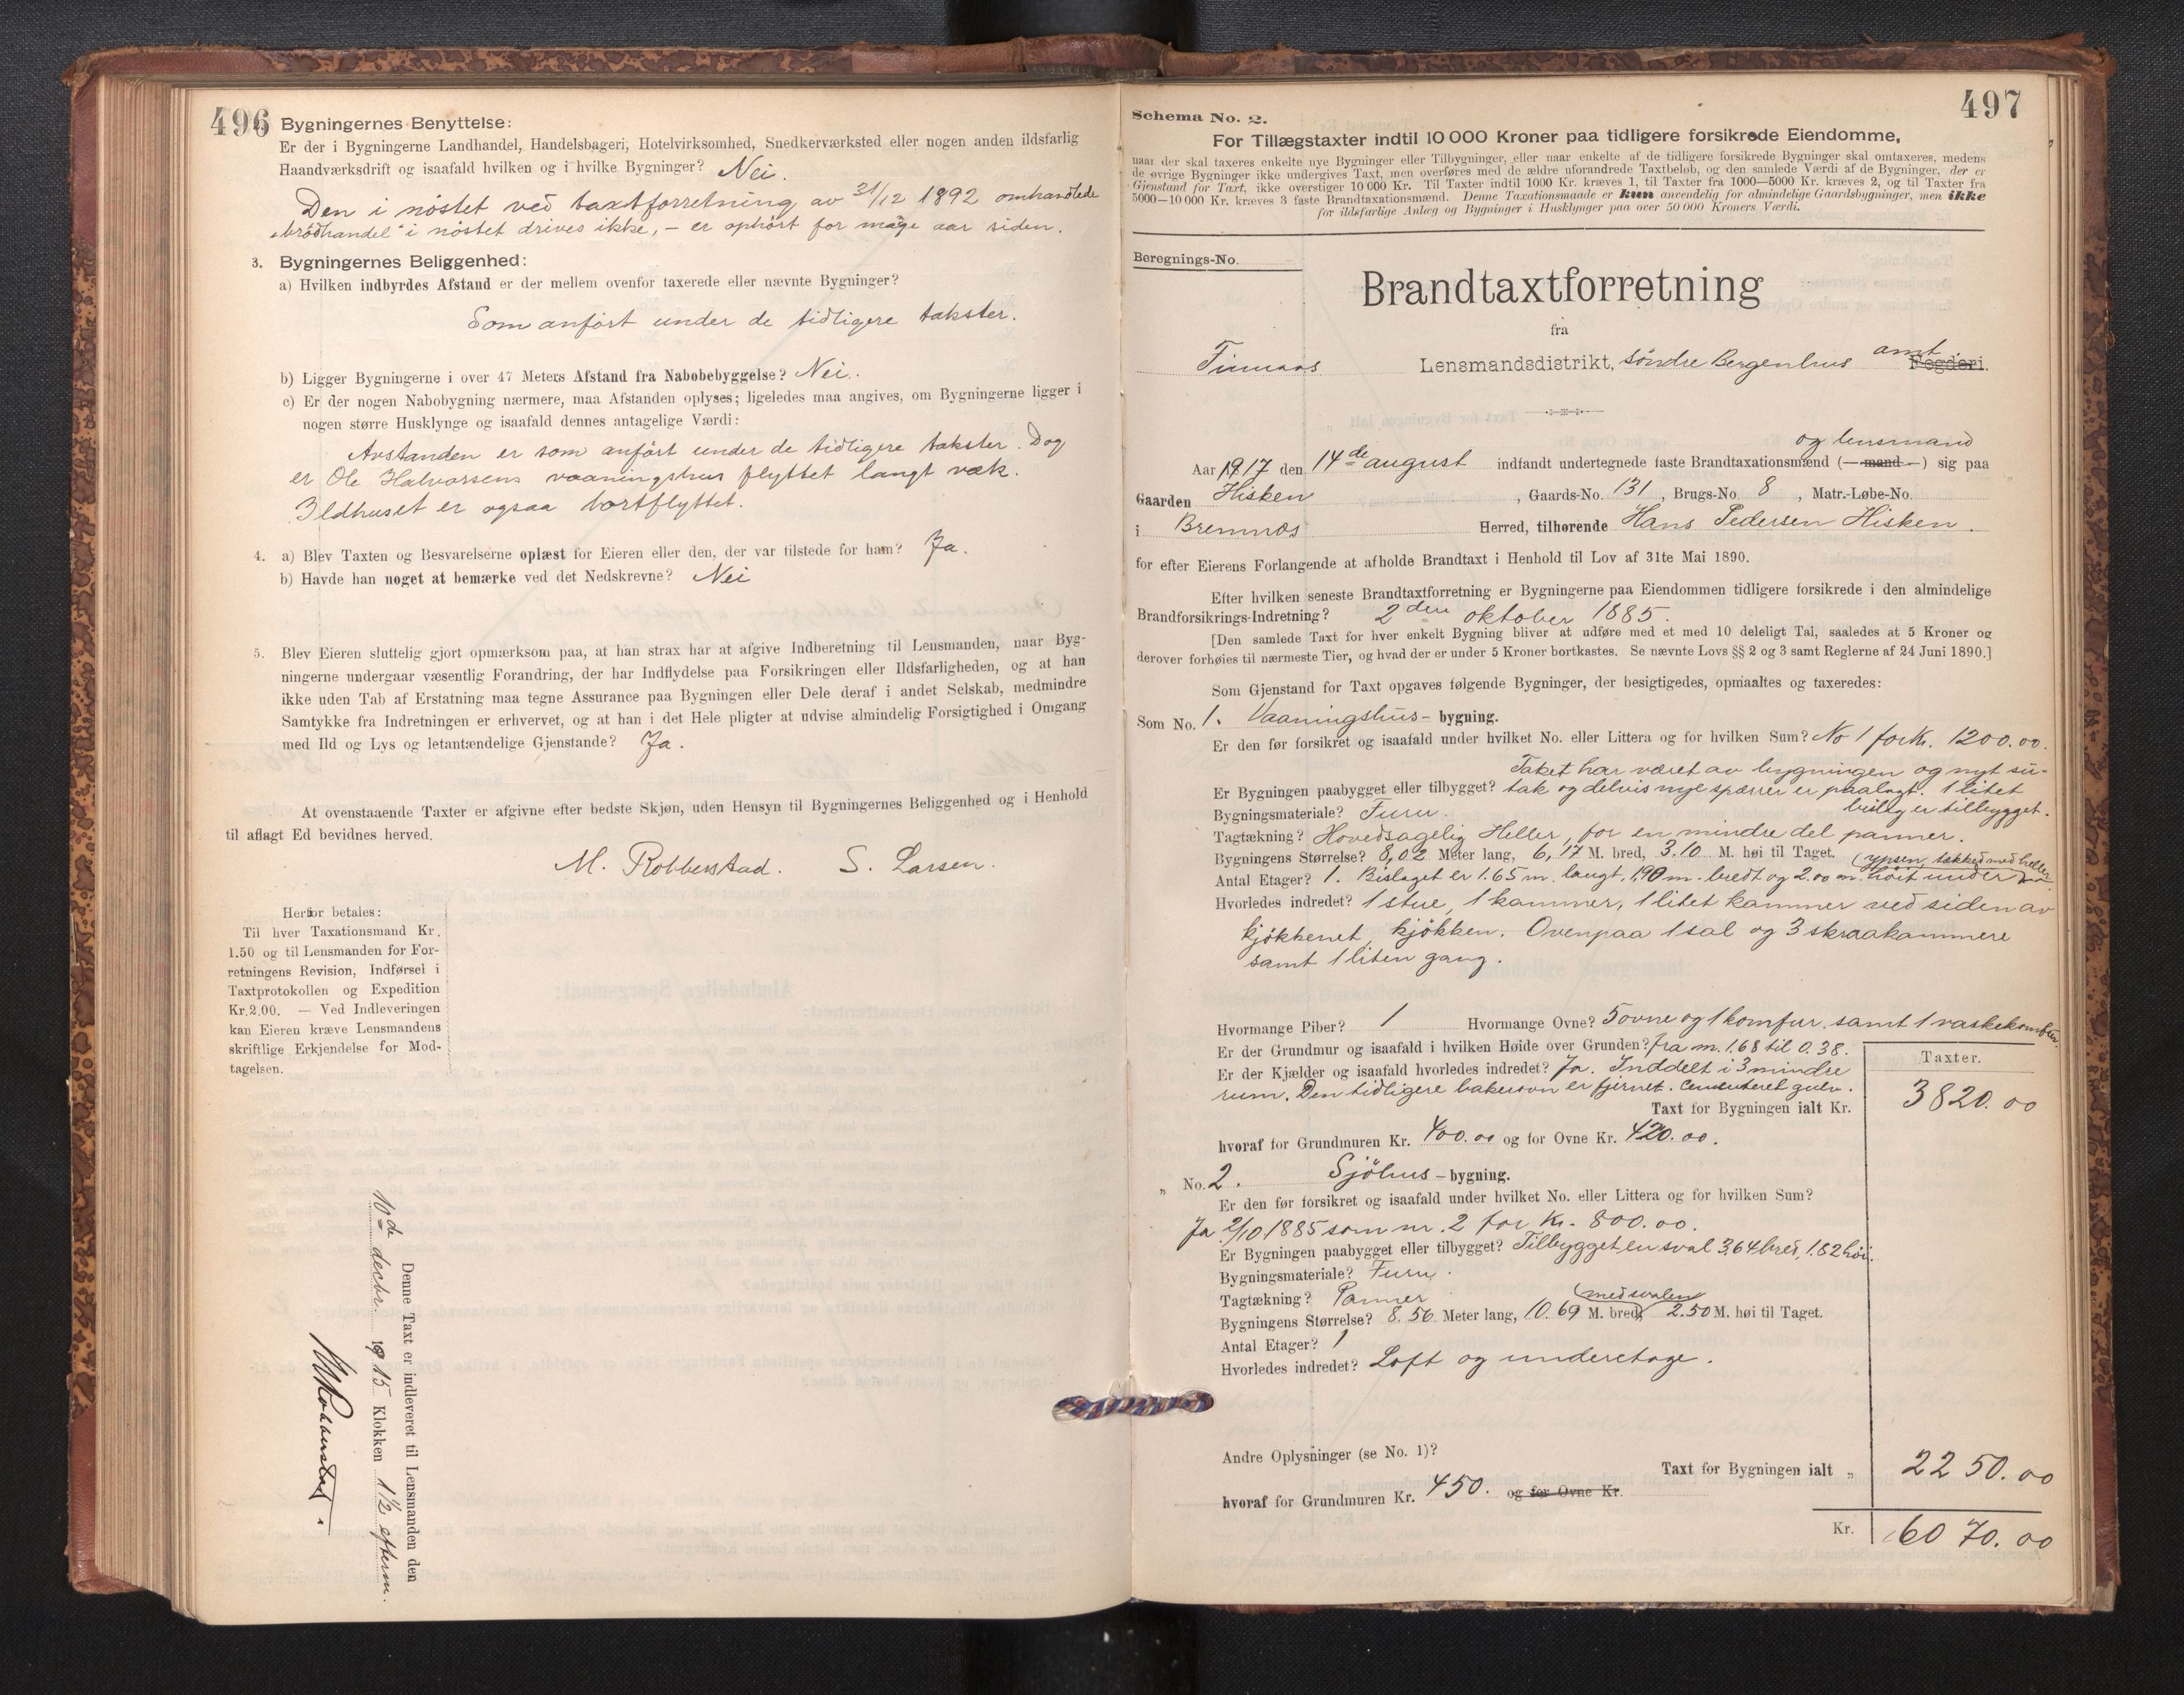 496
Bygningernes Benyttelse:
Er der i Bygningerne Landhandel, Handelsbageri, Hotelvirksomhed, Snedkerværksted eller nogen anden ildsfarlig
Haandværksdrift og isaafald hvilken og i hvilke Bygninger? Nei.
Den i nøstet ved taxtforretning av 31/12 1892 omhandlede
„brødhandel“ i nøstet drives ikke, – er ophørt for mange aar siden.
3. Bygningernes Beliggenhed:
a) Hvilken indbyrdes Afstand er der mellem ovenfor taxerede eller nævnte Bygninger?
Som anført under de tidligere takster.
b) Ligger Bygningerne i over 47 Meters Afstand fra Nabobebyggelse? Nei.
c) Er der nogen Nabobygning nærmere, maa Afstanden oplyses; ligeledes maa angives, om Bygningerne ligger i
nogen større Husklynge og isaafald dennes antagelige Værdi:
Avstanden er som anført under de tidligere takster. Dog
er Ole Halvorsens vaaningshus flyttet langt væk.
Ildhuset er ogsaa bortflyttet.
4. a) Blev Taxten og Besvarelserne oplæst for Eieren eller den, der var tilstede for ham? Ja.
b) Havde han noget at bemærke ved det Nedskrevne? Nei
5. Blev Eieren sluttelig gjort opmærksom paa, at han strax har at afgive Indberetning til Lensmanden, naar Byg-
ningerne undergaar væsentlig Forandring, der har Indflydelse paa Forsikringen eller Ildsfarligheden, og at han
ikke uden Tab af Erstatning maa tegne Assurance paa Bygningen eller Dele deraf i andet Selskab, medmindre
Samtykke fra Indretningen er erhvervet, og at han i det Hele pligter at udvise almindelig Forsigtighed i Omgang
med Ild og Lys og letantændelige Gjenstande? Ja.
At ovenstaaende Taxter er afgivne efter bedste Skjøn, uden Hensyn til Bygningernes Beliggenhed og i Henhold
til aflagt Ed bevidnes herved.
M. Robberstad. S. Larsen.
Herfor betales:
Til hver Taxationsmand Kr.
1.50 og til Lensmanden for For-
retningens Revision, Indførsel i
Taxtprotokollen og Expedition
Kr. 2.00. — Ved Indleveringen
kan Eieren kræve Lensmandens
skriftlige Erkjendelse for Mod-
tagelsen.
Denne Taxt er indleveret til Lensmanden den
10de decbr. 1915 Klokken 1½ efterm.
497
Schema No. 2.
For Tillægstaxter indtil 10 000 Kroner paa tidligere forsikrede Eiendomme,
naar der skal taxeres enkelte nye Bygninger eller Tilbygninger, eller naar enkelte af de tidligere forsikrede Bygninger skal omtaxeres, medens
de øvrige Bygninger ikke undergives Taxt, men overføres med de ældre uforandrede Taxtbeløb, og den samlede Værdi af de Bygninger, der er
Gjenstand for Taxt, ikke overstiger 10 000 Kr. Til Taxter indtil 1000 Kr. kræves 1, til Taxter fra 1000—5000 Kr. kræves 2, og til Taxter fra
5000—10 000 Kr. kræves 3 faste Brandtaxationsmænd. Denne Taxationsmaade er kun anvendelig for almindelige Gaardsbygninger, men ikke
for ildsfarlige Anlæg og Bygninger i Husklynger paa over 50 000 Kroners Værdi.
Beregnings-No.
Brandtaxtforretning
fra
Finnaas Lensmandsdistrikt, søndre Bergenhus amt Fogderi.
og lensmand
Aar 1917 den 14de august indfandt undertegnede faste Brandtaxationsmænd (—mand—) sig paa
Gaarden Hisken, Gaards-No. 131, Brugs-No. 8, Matr.-Løbe-No.
i Bremnes Herred, tilhørende Hans Pedersen Hisken.
for efter Eierens Forlangende at afholde Brandtaxt i Henhold til Lov af 31te Mai 1890.
Efter hvilken seneste Brandtaxtforretning er Bygningerne paa Eiendommen tidligere forsikrede i den almindelige
Brandforsikrings-Indretning? 2den oktober 1885.
[Den samlede Taxt for hver enkelt Bygning bliver at udføre med et med 10 deleligt Tal, saaledes at 5 Kroner og
derover forhøies til nærmeste Tier, og hvad der er under 5 Kroner bortkastes. Se nævnte Lovs §§ 2 og 3 samt Reglerne af 24 Juni 1890.]
Som Gjenstand for Taxt opgaves følgende Bygninger, der besigtigedes, opmaaltes og taxeredes:
Som No. 1. Vaaningshus-bygning.
Er den før forsikret og isaafald under hvilket No. eller Littera og for hvilken Sum? No 1 for Kr. 1200.00.
Taket har været av bygningen og nyt su-
Er Bygningen paabygget eller tilbygget? tak og delvis nye spærrer er paalagt. 1 litet
bislag er tilbygget.
Bygningsmateriale? Furu.
Tagtækning? Hovedsagelig Heller, for en mindre del panner.
Bygningens Størrelse? 8,02 Meter lang, 6,17 M. bred, 3.10 M. høi til Taget.
Antal Etager? 1. Bislaget er 1.65 m. langt, 1,90 m. bredt og 2.00 m. høit under
(ypsen, tækked med heller
Hvorledes indredet? 1 stue, 1 kammer, 1 litet kammer ved siden av
kjøkkenet, kjøkken. Ovenpaa 1 sal og 3 skraakammere
samt 1 liten gang.
Hvormange Piber? 1 Hvormange Ovne? 5 ovne og 1 komfur, samt 1 vaskekomfur.
Er der Grundmur og isaafald i hvilken Høide over Grunden? fra m. 1.68 til 0.38.
Er der Kjælder og isaafald hvorledes indredet? Ja. Inddelt i 3 mindre
rum. Den tidligere bakerovn er fjernet. Cementeret gulv.
Taxter.
Taxt for Bygningen ialt Kr. 3820.00
hvoraf for Grundmuren Kr. 400.00 og for Ovne Kr. 420.00.
„ No. 2. Sjöhus-bygning.
Er den før forsikret og isaafald under hvilket No. eller Littera og for hvilken Sum?
Ja 2/10 1885 som nr. 2 for Kr. 800.00.
Er Bygningen paabygget eller tilbygget? Tilbygget en sval 3,64 bred, 1.82 høi.
Bygningsmateriale? Furu.
Tagtækning? Panner
(med svalen)
Bygningens Størrelse? 8.56 Meter lang, 10.69 M. bred, 2.50 M. høi til Taget.
Antal Etager? 1
Hvorledes indredet? Loft og underetage.
Andre Oplysninger (se No. 1)?
Taxt for Bygningen ialt „ 2250.00
hvoraf for Grundmuren Kr. 450. og for Ovne Kr.
Kr. 6070.00